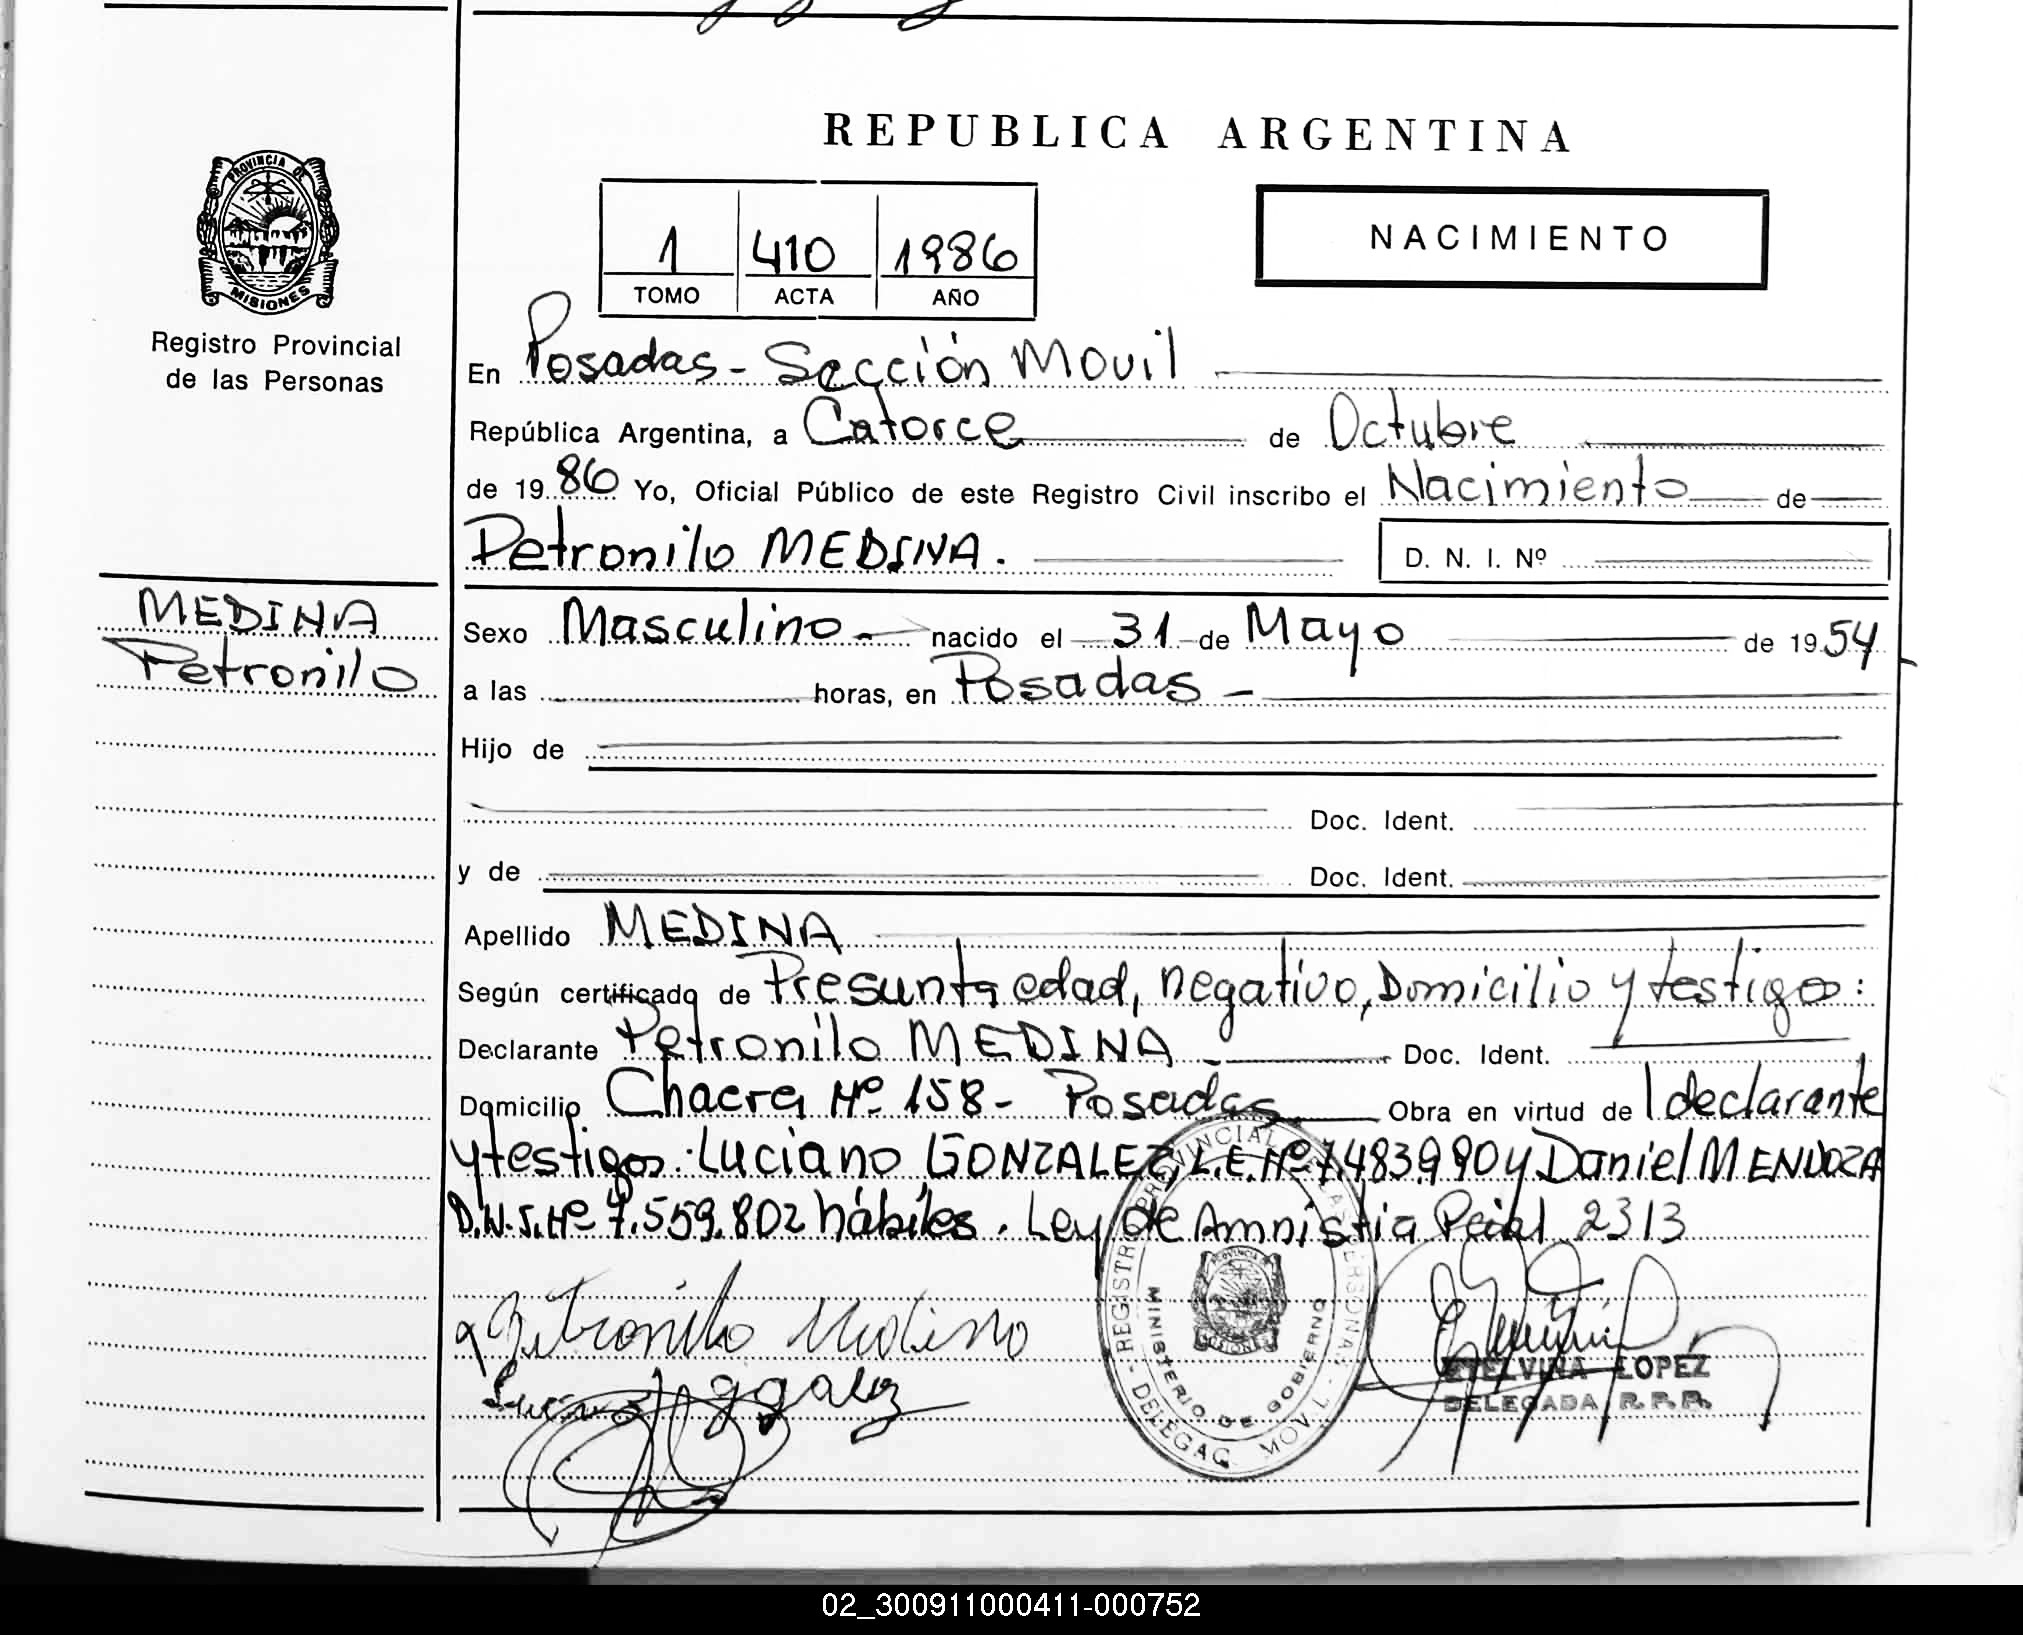 REPUBLICA ARGENTINA
PROVINCIA DE
MISIONES
Registro Provincial
de las Personas
1 410 1986
TOMO ACTA AÑO
NACIMIENTO
En Posadas - Sección Movil
República Argentina, a Catorce de Octubre
de 1986 Yo, Oficial Público de este Registro Civil inscribo el Nacimiento de
Petronilo MEDINA. D. N. I. Nº
MEDINA
Petronilo
Sexo Masculino nacido el 31 de Mayo de 1954
a las horas, en Posadas -
Hijo de
Doc. Ident.
y de Doc. Ident.
Apellido MEDINA
Según certificado de Presunta edad, negativo, Domicilio y testigos:
Declarante Petronilo MEDINA Doc. Ident.
Domicilio Chacra Nº 158 - Posadas Obra en virtud de l declarante
y testigos: Luciano GONZALEZ L.E. Nº 7.483.990 y Daniel MENDOZA
D.N.I. Nº 7.559.802 hábiles. Ley de Amnistia Pcial 2313
Petronilo Medina
REGISTRO PROVINCIAL DE LAS PERSONAS
MINISTERIO DE GOBIERNO
- DELEGAC. MOVIL -
ETELVINA LOPEZ
DELEGADA R.P.P.
02_300911000411-000752